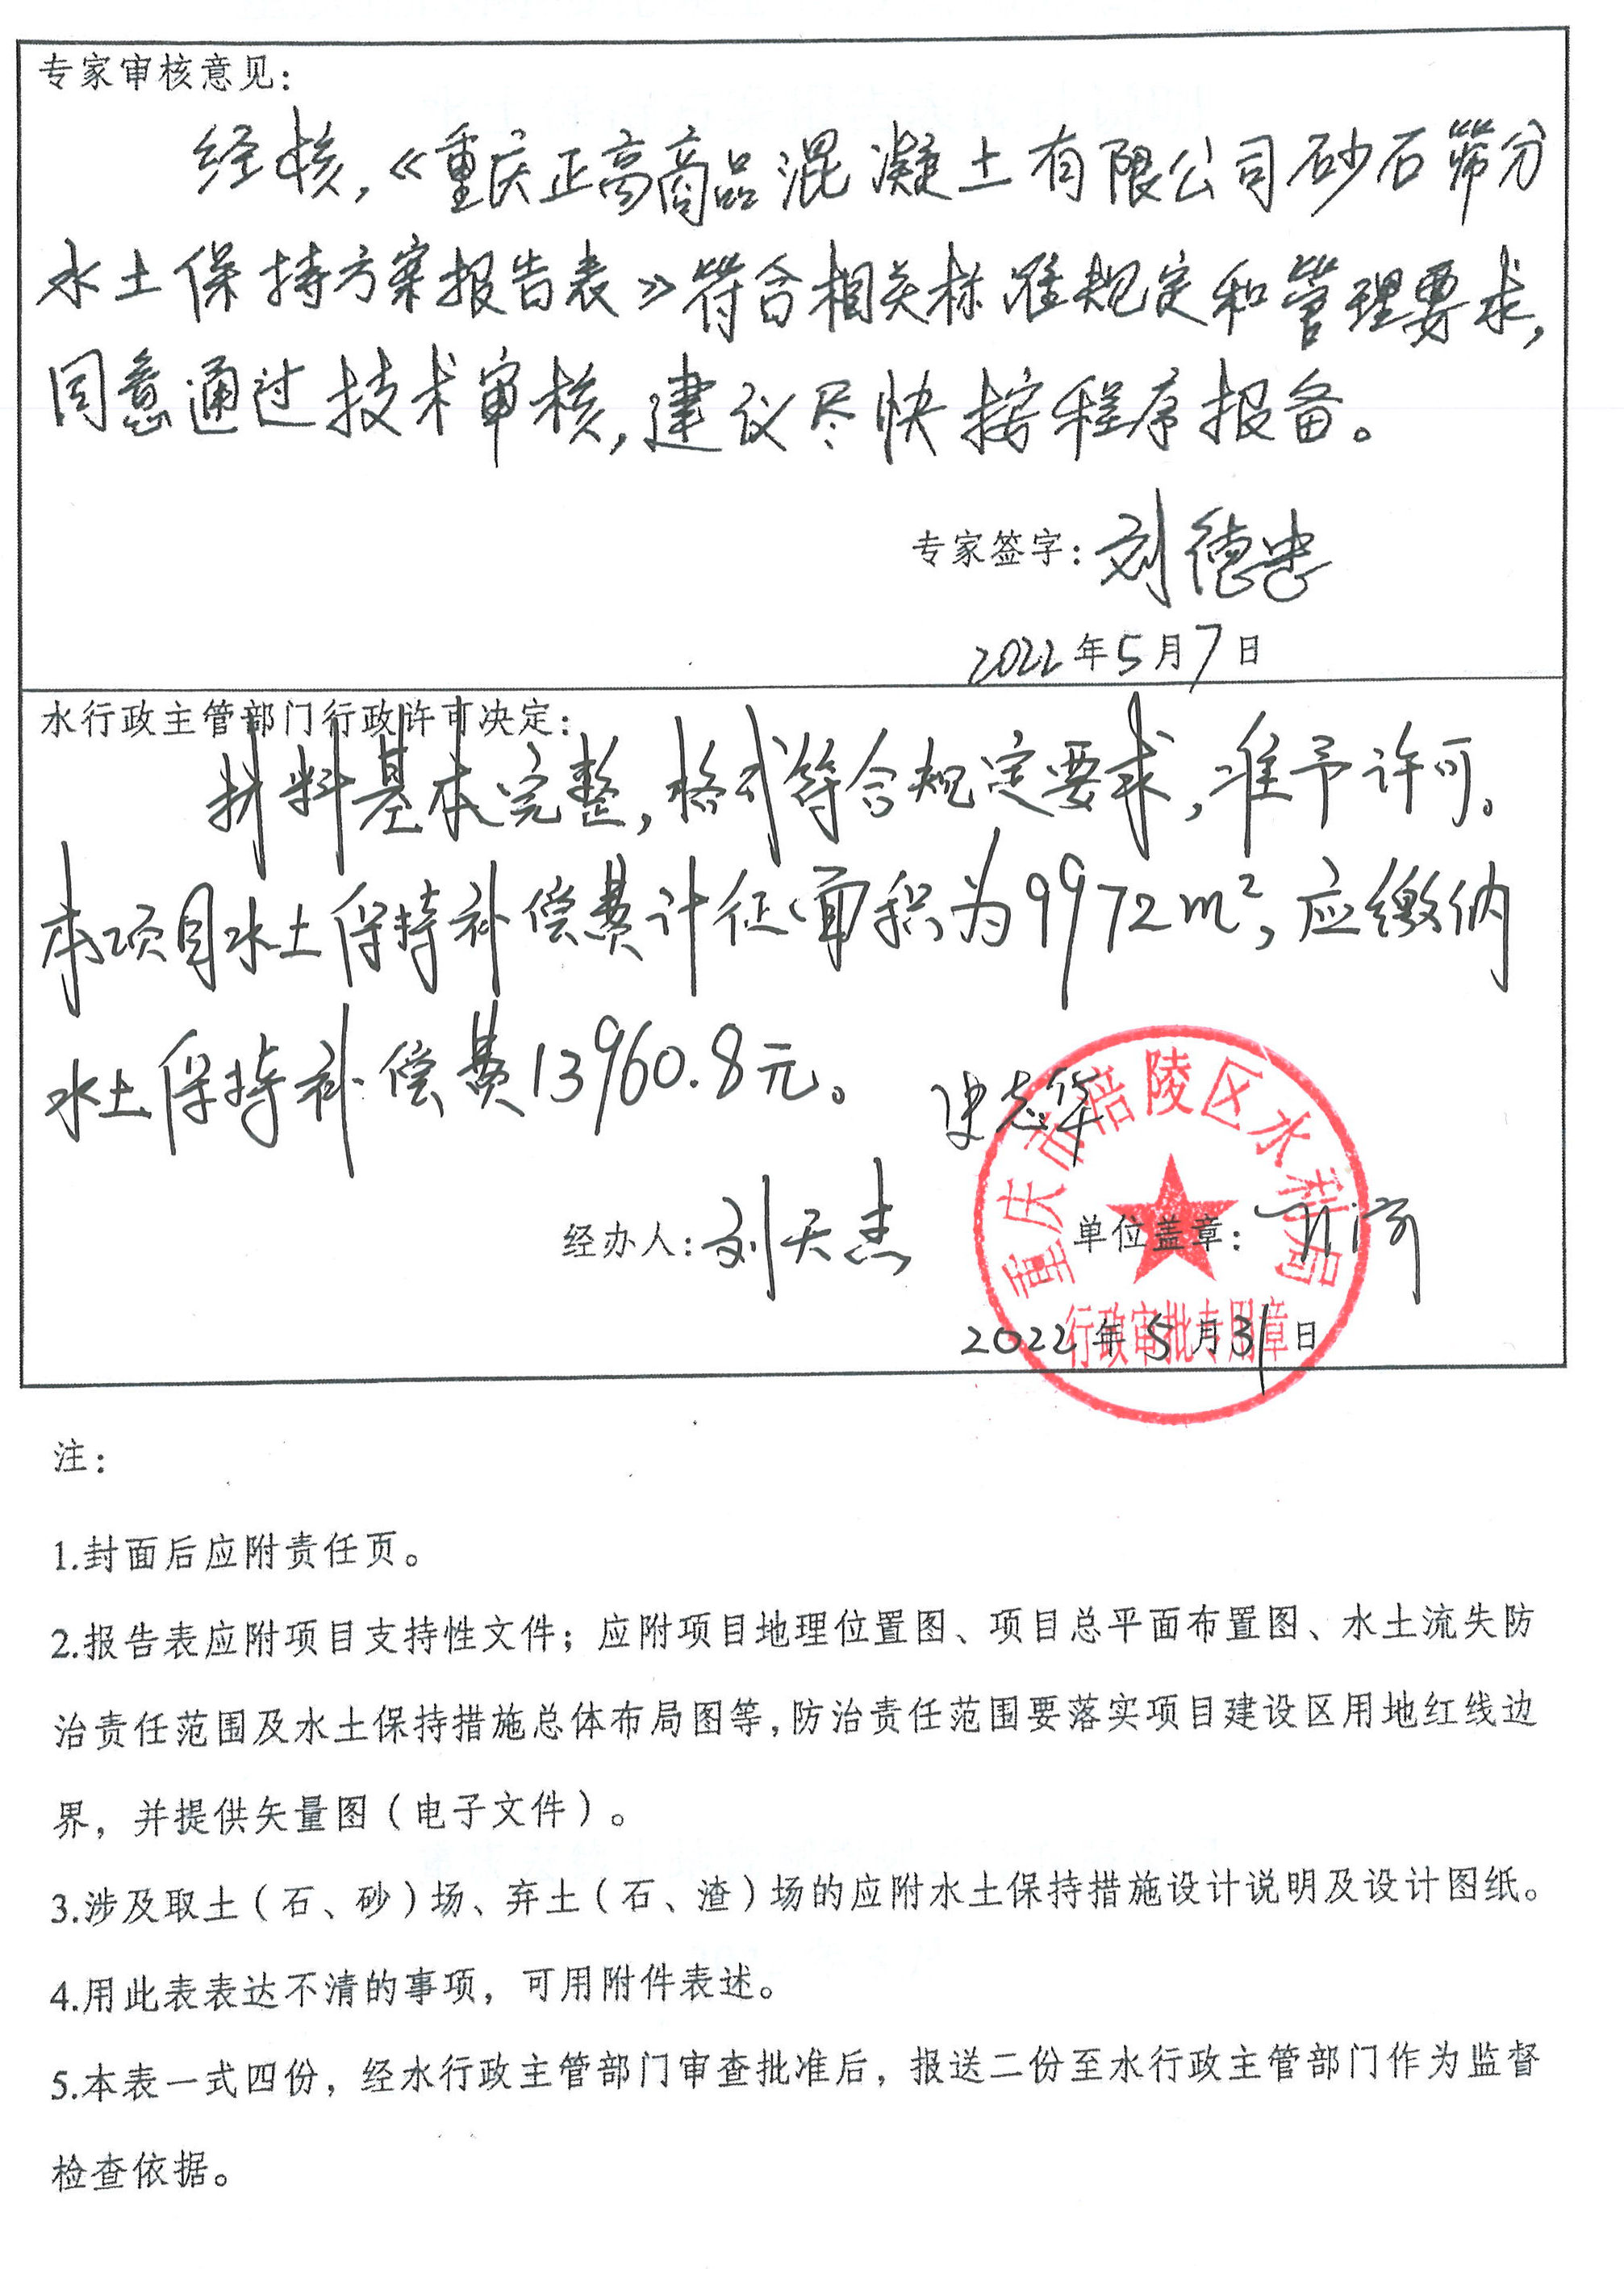 专家审核意见:
经核,《重庆正高商品混凝土有限公司砂石筛分
水土保持方案报告表》符合相关标准规定和管理要求,
同意通过技术审核,建议尽快按程序报备。
专家签字:刘德忠
2022年5月7日
水行政主管部门行政许可决定:
材料基本完整,格式符合规定要求,准予许可。
本项目水土保持补偿费计征面积为9972m²,应缴纳
水土保持补偿费13960.8元。
史志华
重庆市涪陵区水利局
经办人:刘天杰 单位盖章:
行政审批专用章
2022年5月31日
注:
1.封面后应附责任页。
2.报告表应附项目支持性文件;应附项目地理位置图、项目总平面布置图、水土流失防
治责任范围及水土保持措施总体布局图等,防治责任范围要落实项目建设区用地红线边
界,并提供矢量图(电子文件)。
3.涉及取土(石、砂)场、弃土(石、渣)场的应附水土保持措施设计说明及设计图纸。
4.用此表表达不清的事项,可用附件表述。
5.本表一式四份,经水行政主管部门审查批准后,报送二份至水行政主管部门作为监督
检查依据。